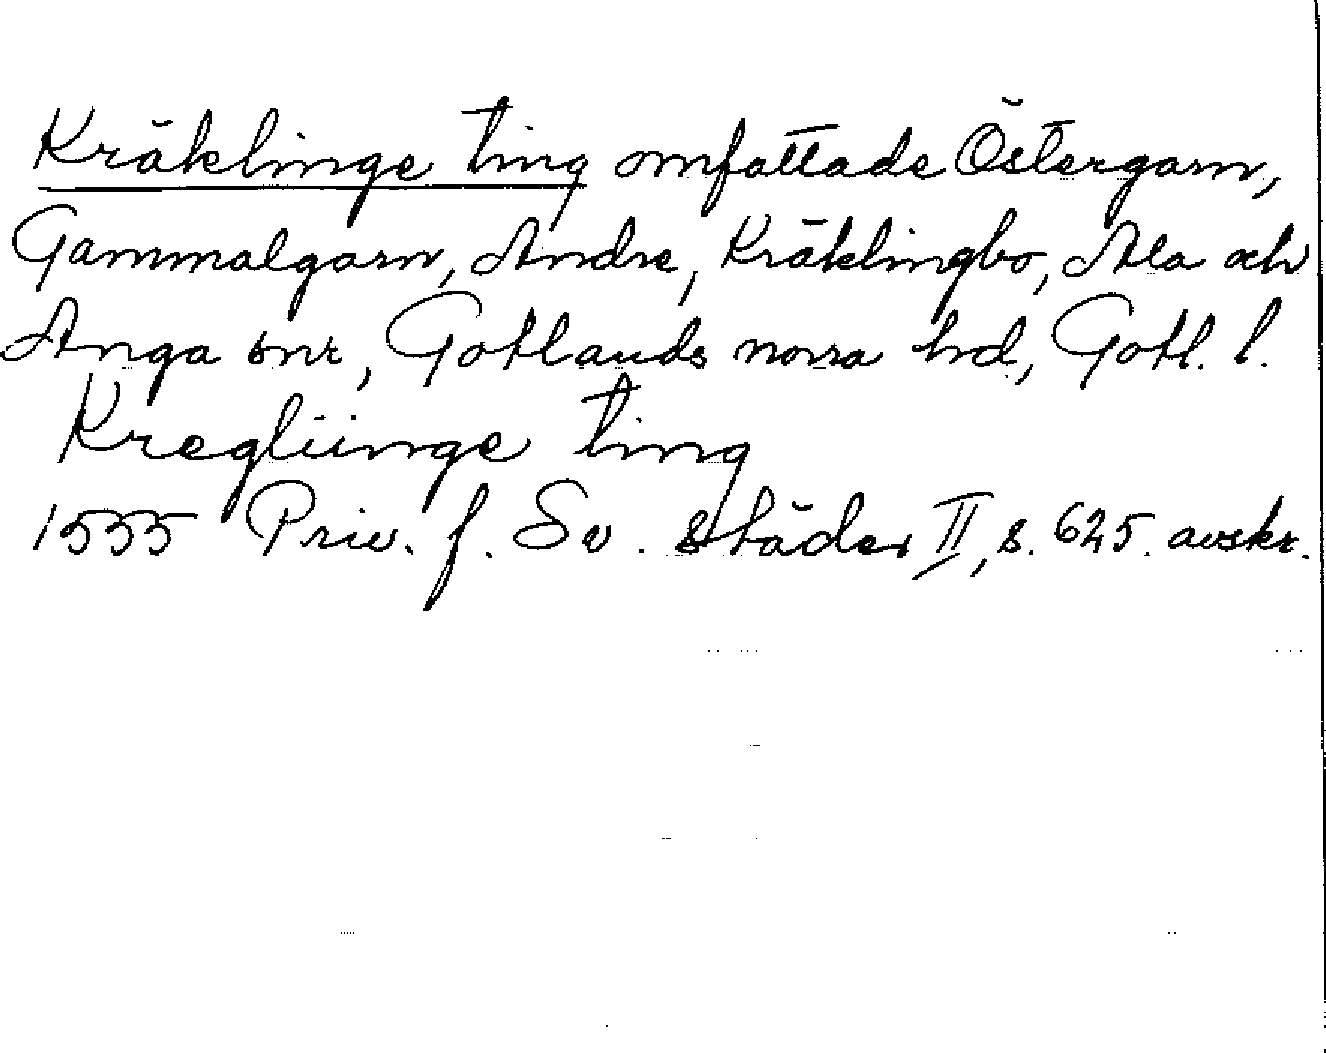 Kräklinge ting omfattade Östergarn,
Gammalgarn, Ardre, Kräklingbo, Ala och
Anga snr, Gotlands norra hd, Gotl. l.
Kregliinge ting
1555 Priv. f. Sv. städer II, s. 625. avskr.